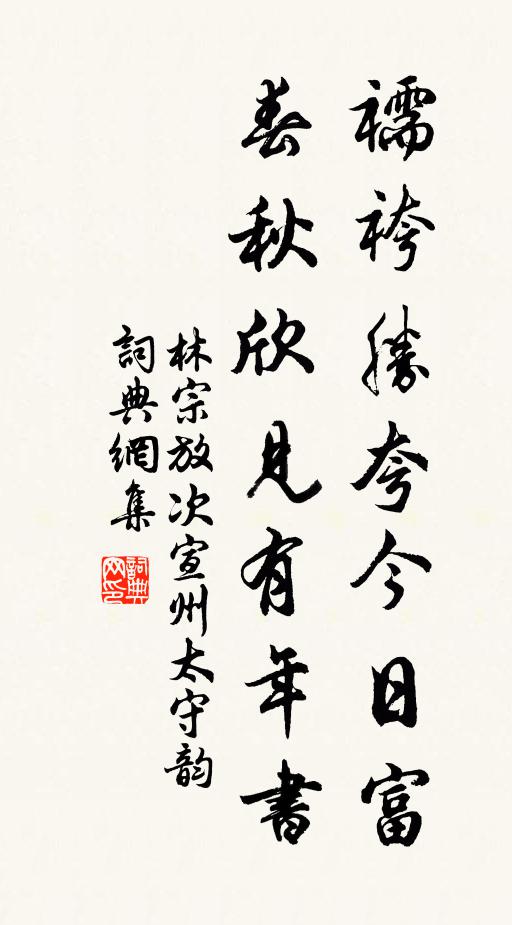 襦袴勝夸今日富
春秋欣見有年書
林宗放次宣州太守韵
詞典網集
詞典
网印